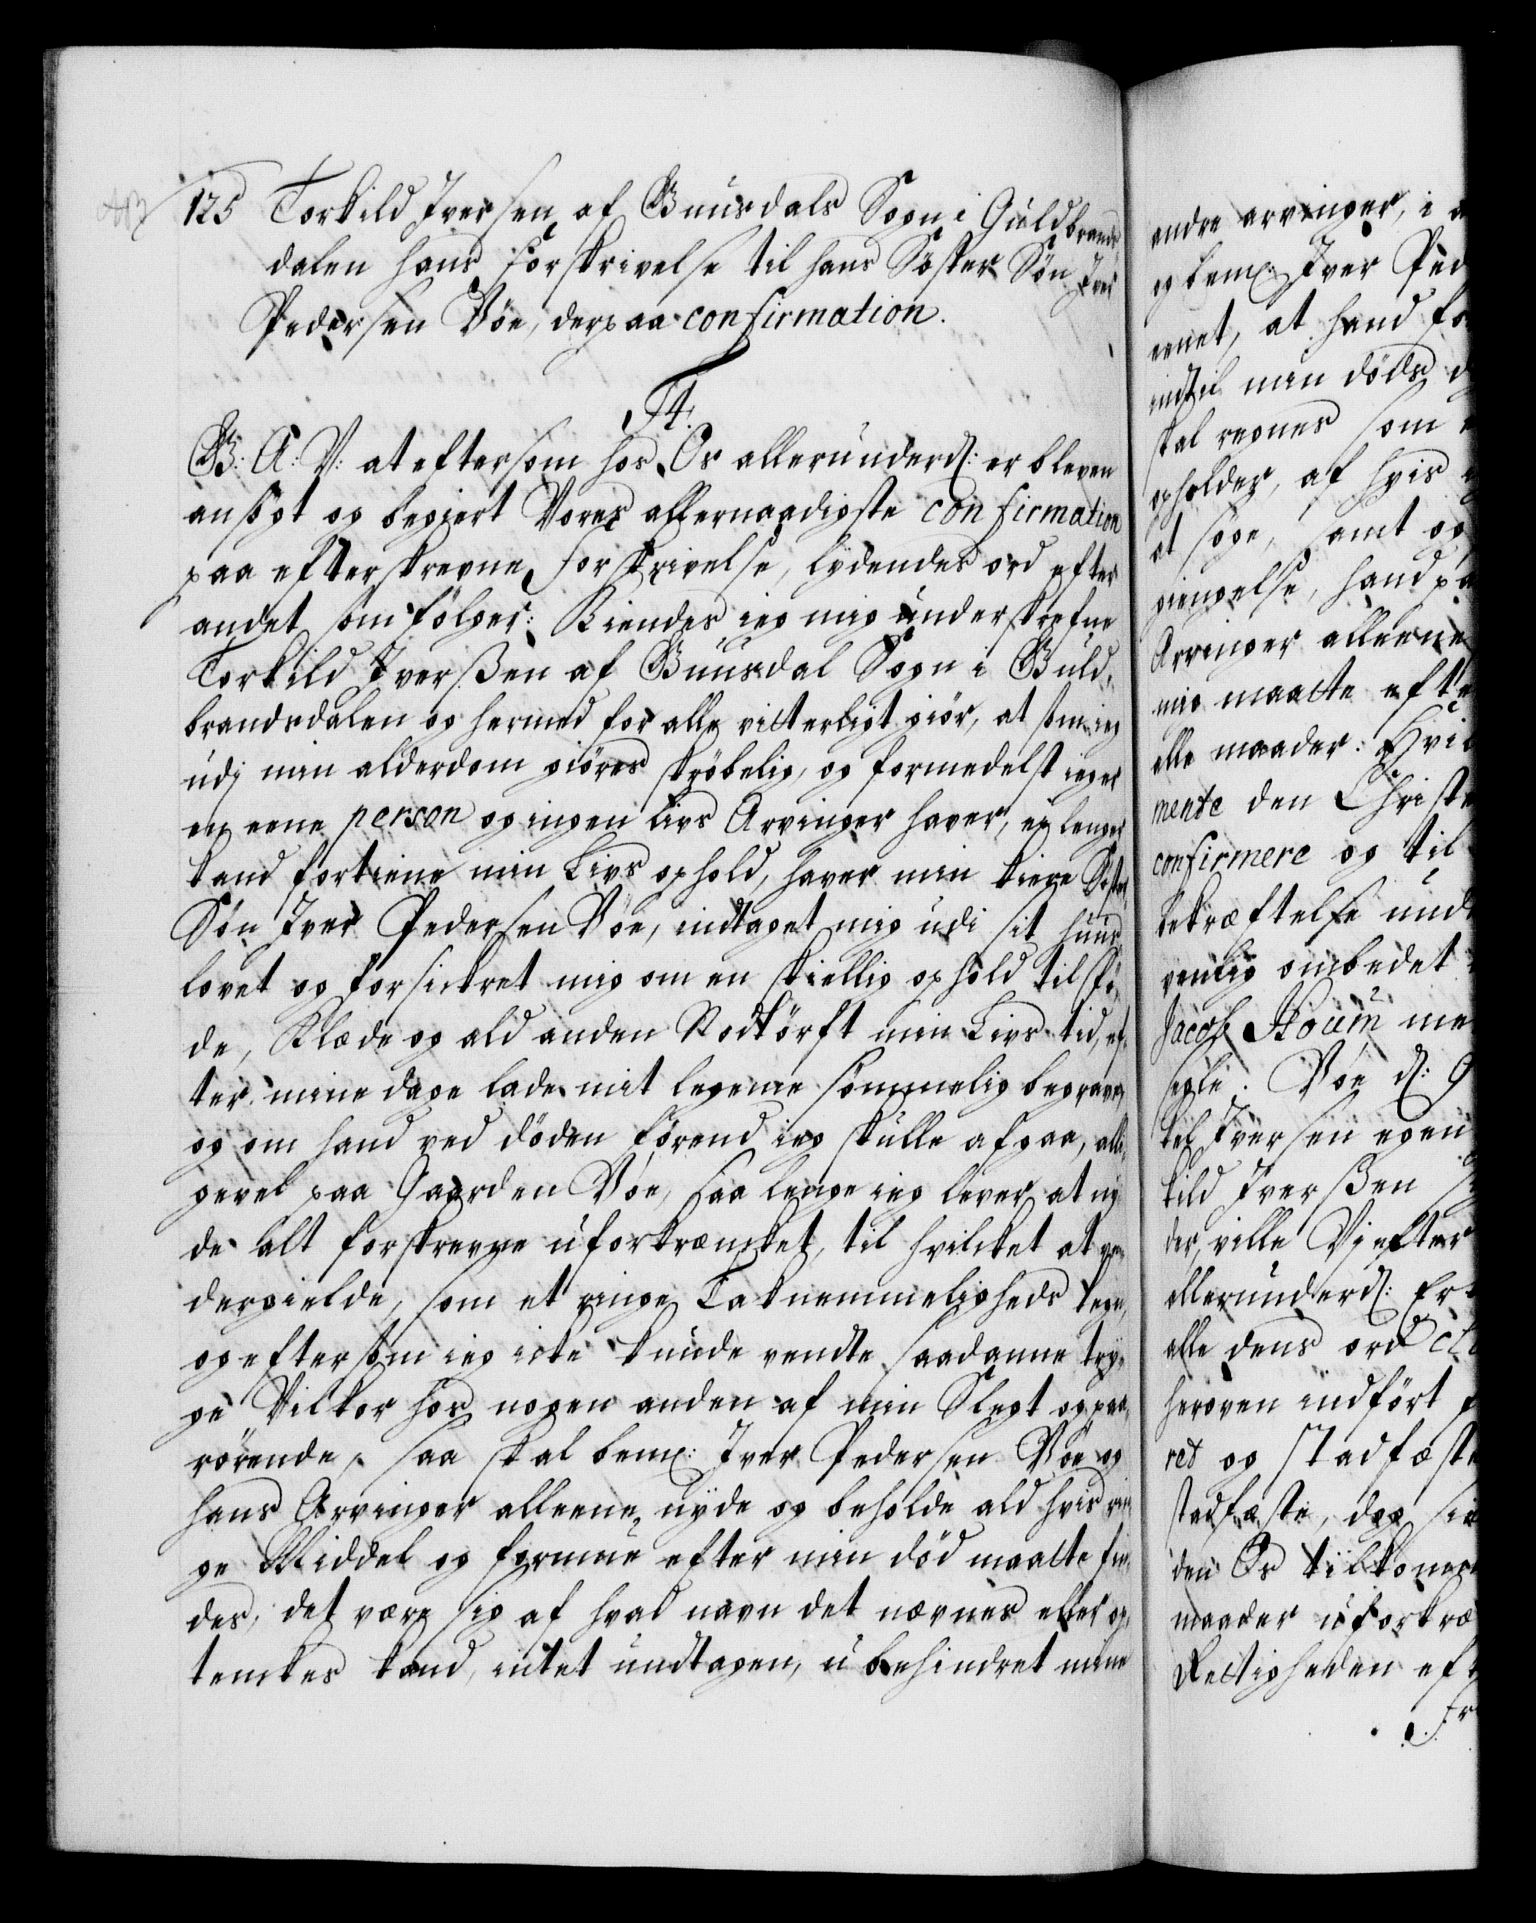 125 Torkild Iversen af Buursdals Sogn i Guldbrands
dalen hans forskrivelse til hans Söster Sön Iver
Pedersen Vöe, derpaa confirmation.
F4.
G: A: V: at eftersom hos Os allerunderd: er bleven
ansögt og begiert Vores allernaadigste confirmation
paa efterskrevne forskrivelse, lydendes ord efter
andet som fölger: Kiendes ieg mig underskrefne
Torkild Iverßen af Buursdal Sogn i Guld-
brandsdalen og hermed for alle vitterligt giör, at som ieg
udj min alderdom giöres skröbelig, og formedelst ieg er
en eene person og ingen Livs Arvinger haver, ey lenger
kand fortiene min Livs ophold, haver min kiere Söster
Sön Iver Pedersen Vöe, indtaget mig udi sit huus,
lovet og forsickret mig om en skiellig ophold til fö-
de, Klæde og ald anden Nodtörft min Livs tid, ef-
ter mine dage lade mit legeme sömmelig begrave,
og om hand ved döden förend ieg skulle afgaa, alli-
gevel paa Gaarden Vöe, saa lenge ieg lever at ny-
de alt forskrevne uforkræncket, til hvilcket at ve-
dergielde, som et ringe Taknemmeligheds tegn,
og eftersom ieg icke kunde vendte saadanne try-
ge Vilkor hos nogen anden af min Slegt og paa-
rörende, saa skal bemte: Iver Pedersen Vöe og
hans Arvinger alleene nyde og beholde ald hvis rin-
ge Middel og formue efter min död maatte fin-
des, det være sig af hvad navn det nævnes eller op-
tenckes kand, intet undtagen, ubehindret mine
andre arvinger, i
og bemte: Iver Ped
eenet, at hand
indtil min döds
skal regnes som
opholder, af hvis
at söge, samt og
giengelse, hand
Arvinger alleene
mig maatte efte
alle maader: Hvil
mente den Christe
confirmere og til
bekræftelse und
venlig ombedet
Jacob Houm me
segle. Vöe d: 9
kel Iversen egen
kild Iverßen
der, ville Vi efter
allerunderd:
alle dens ord
heroven indfört
ret og Stadfæste
stadfæste, dog
den Os tilkomme
maader uforkræ
Rettigheden ef
Fr